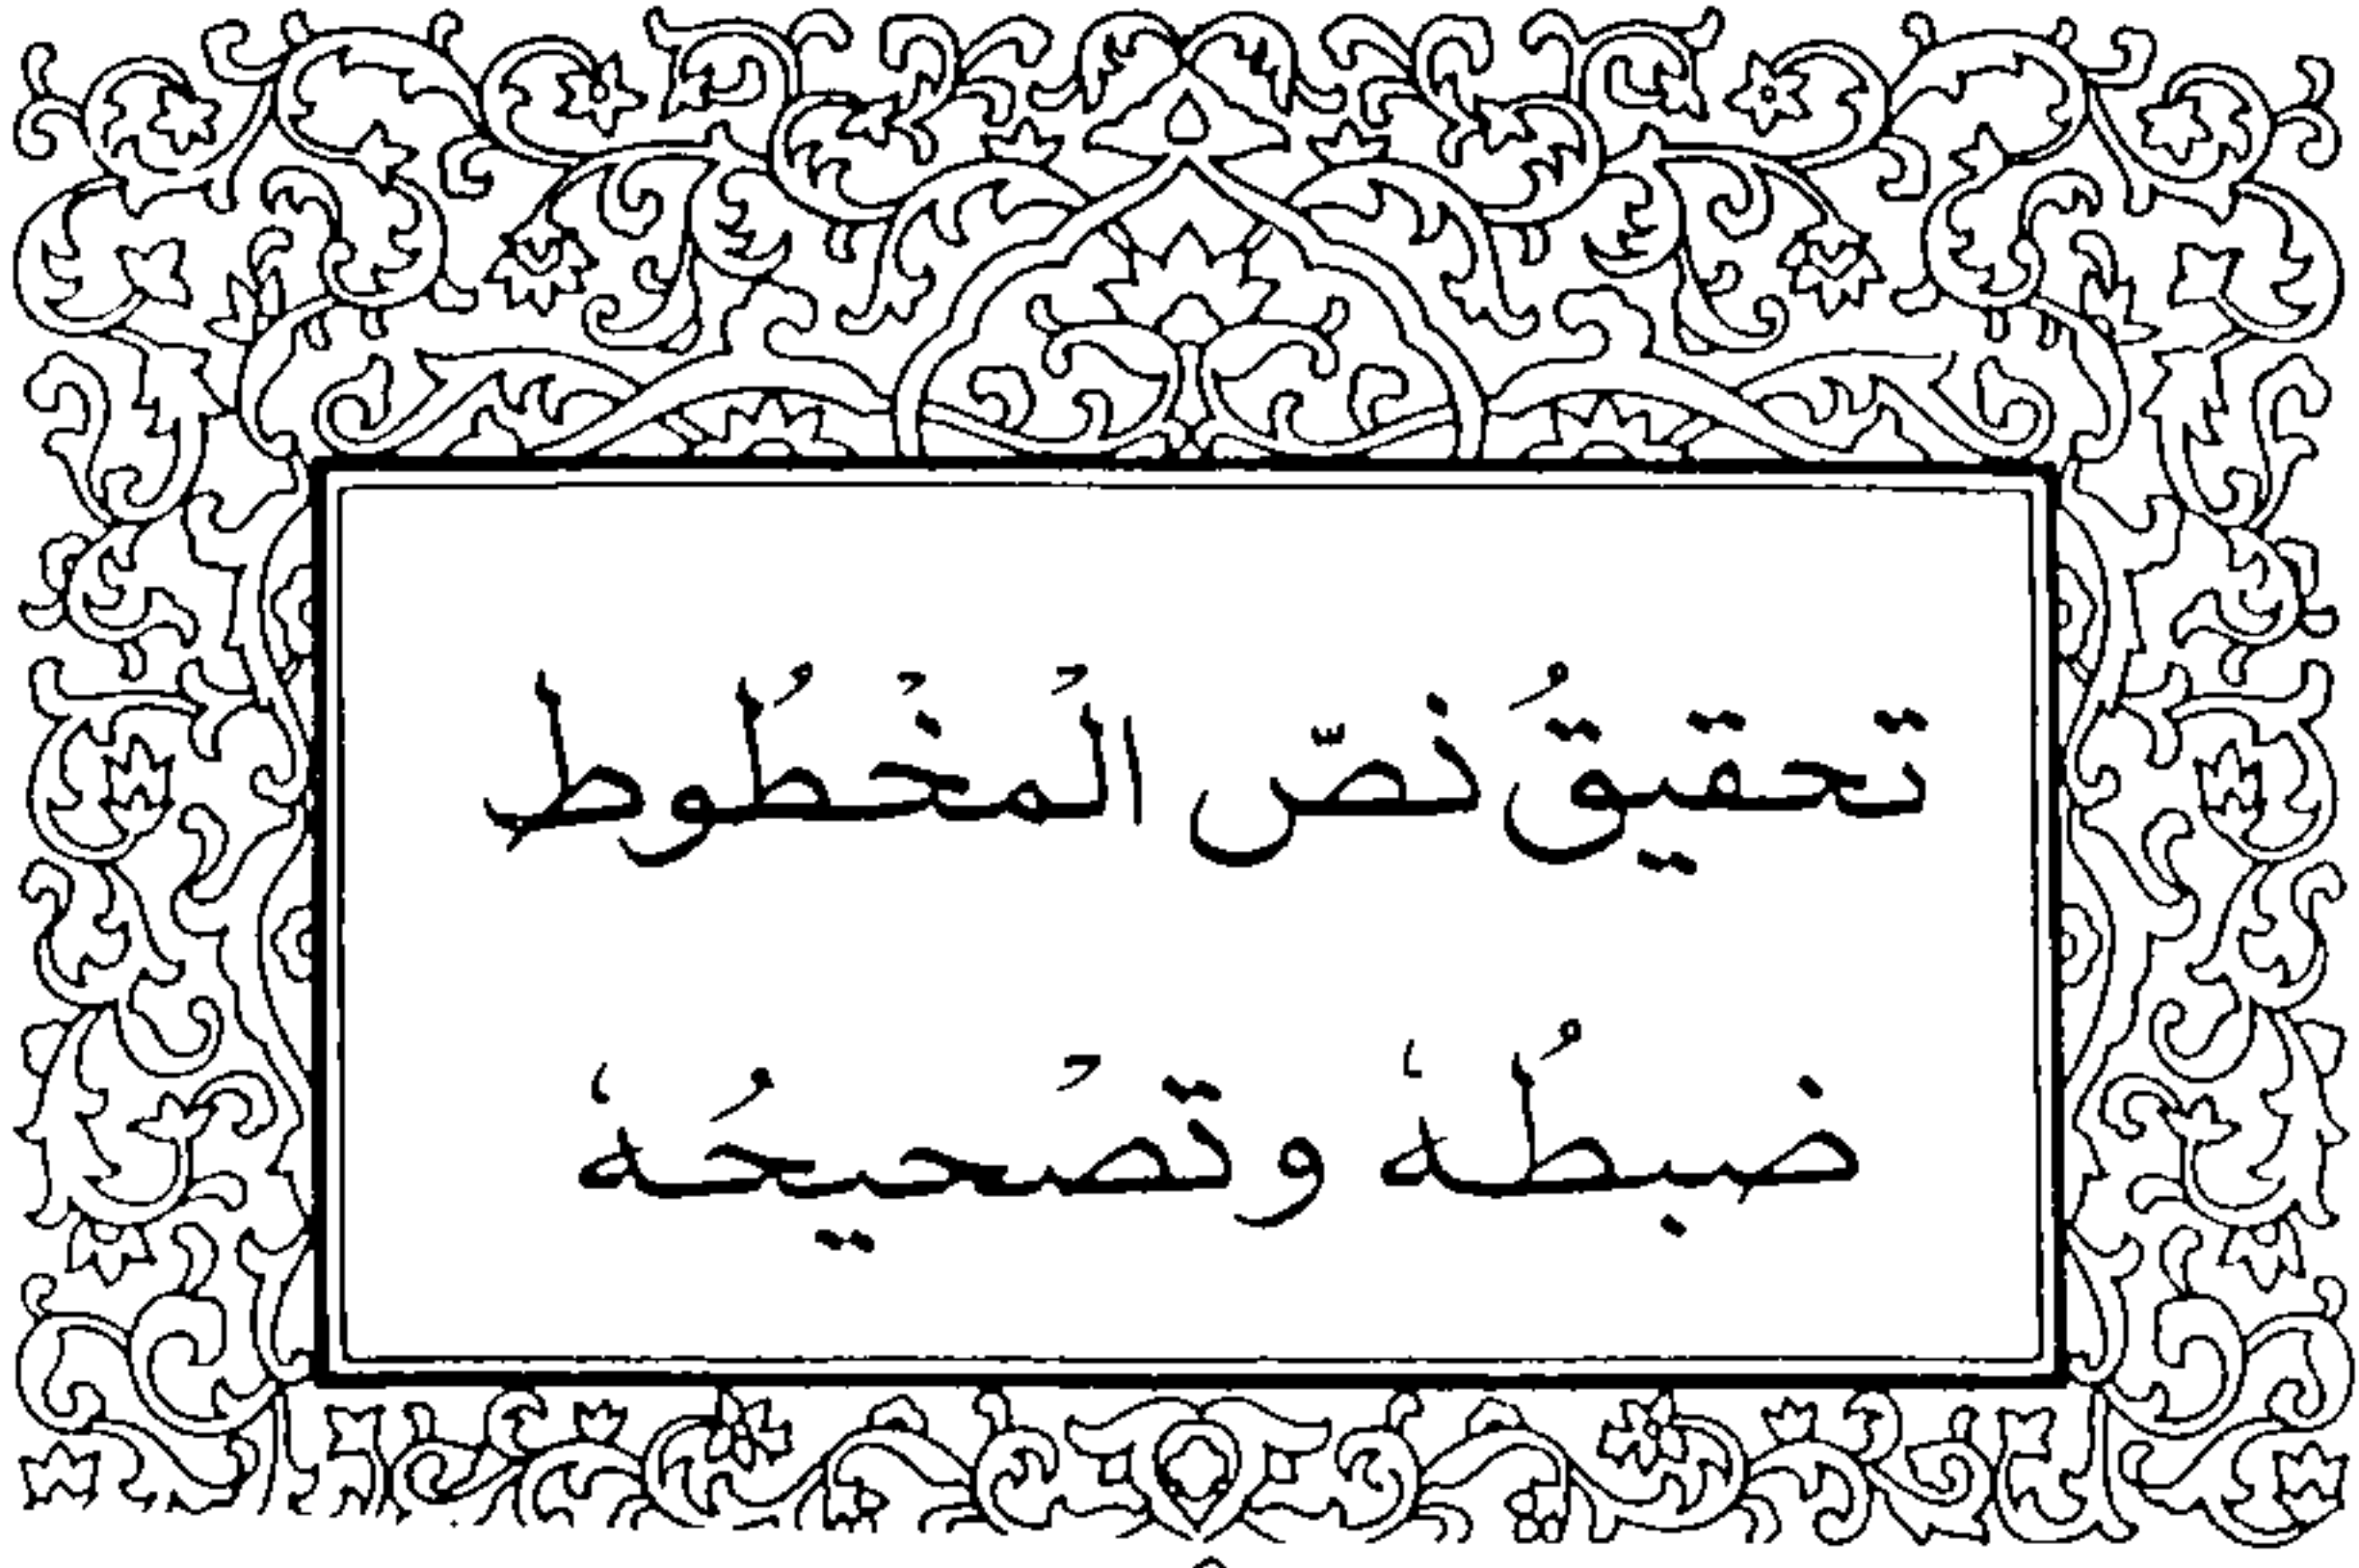 تحقيقُ نصّ المْخْطُوط
ضبطُهٰ وتصْحيحُهٰ